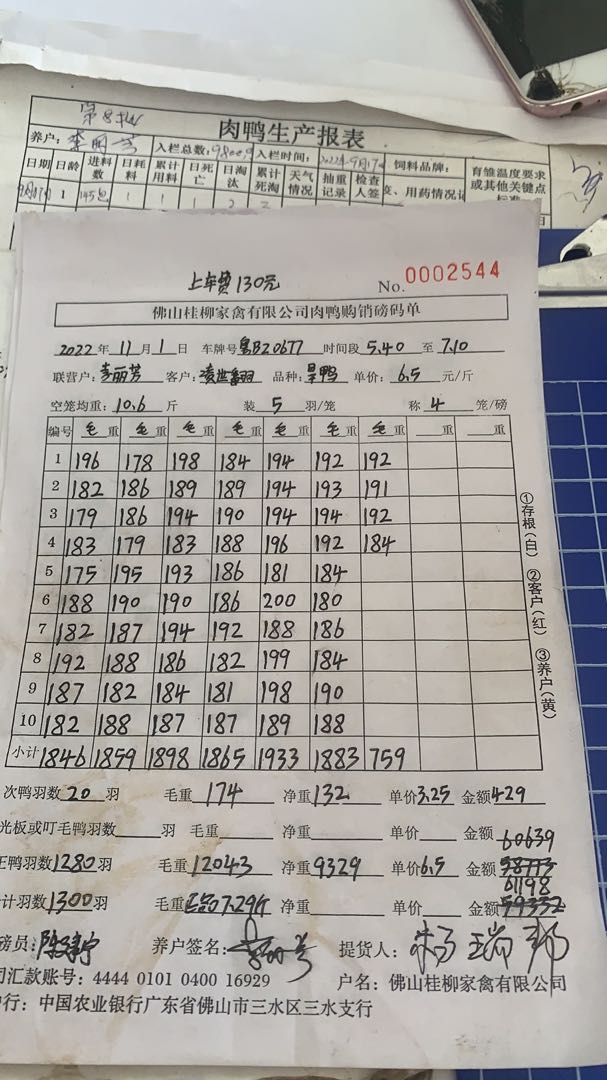 第8批
肉鸭生产报表
养户: 李丽芳 入栏总数: 9800 入栏时间: 2022年9月17日 饲料品牌:
日期 日龄 进料数 日耗料 累计用料 日死亡 日淘汰 累计死淘 天气情况 抽重记录 检查人签 用药情况 育雏温度要求或其他关键点
1 145包 1 1 1 2
上车费130元 No. 0002544
佛山桂柳家禽有限公司肉鸭购销磅码单
2022年 11月 1日 车牌号 粤B20677 时间段 5.40 至 7.10
联营户: 李丽芳 客户: 品种: 旱鸭 单价: 6.5 元/斤
空笼均重: 10.6 斤 装 5 羽/笼 称 4 笼/磅
编号 毛重 毛重 毛重 毛重 毛重 毛重 毛重 重 重
1 196 178 198 184 194 192 192
2 182 186 189 189 194 193 191
3 179 186 194 190 194 194 192
4 183 179 183 188 196 192 184
5 175 195 193 186 181 184
6 188 190 190 186 200 180
7 182 187 194 192 188 186
8 192 188 186 182 199 184
9 187 182 184 181 198 190
10 182 188 187 187 189 188
小计 1846 1859 1898 1865 1933 1883 759
①存根(白) ②客户(红) ③养户(黄)
次鸭羽数 20 羽 毛重 174 净重 132 单价 3.25 金额 429
光板或叮毛鸭羽数 羽 毛重 净重 单价 金额
正鸭羽数 1280 羽 毛重 12043 净重 9329 单价 6.5 金额 60639
计羽数 1300 羽 毛重 7.29斤 净重 单价 金额 61198
磅员: 养户签名: 李丽芳 提货人: 杨瑞邦
司汇款账号: 4444 0101 0400 16929 户名: 佛山桂柳家禽有限公司
行: 中国农业银行广东省佛山市三水区三水支行